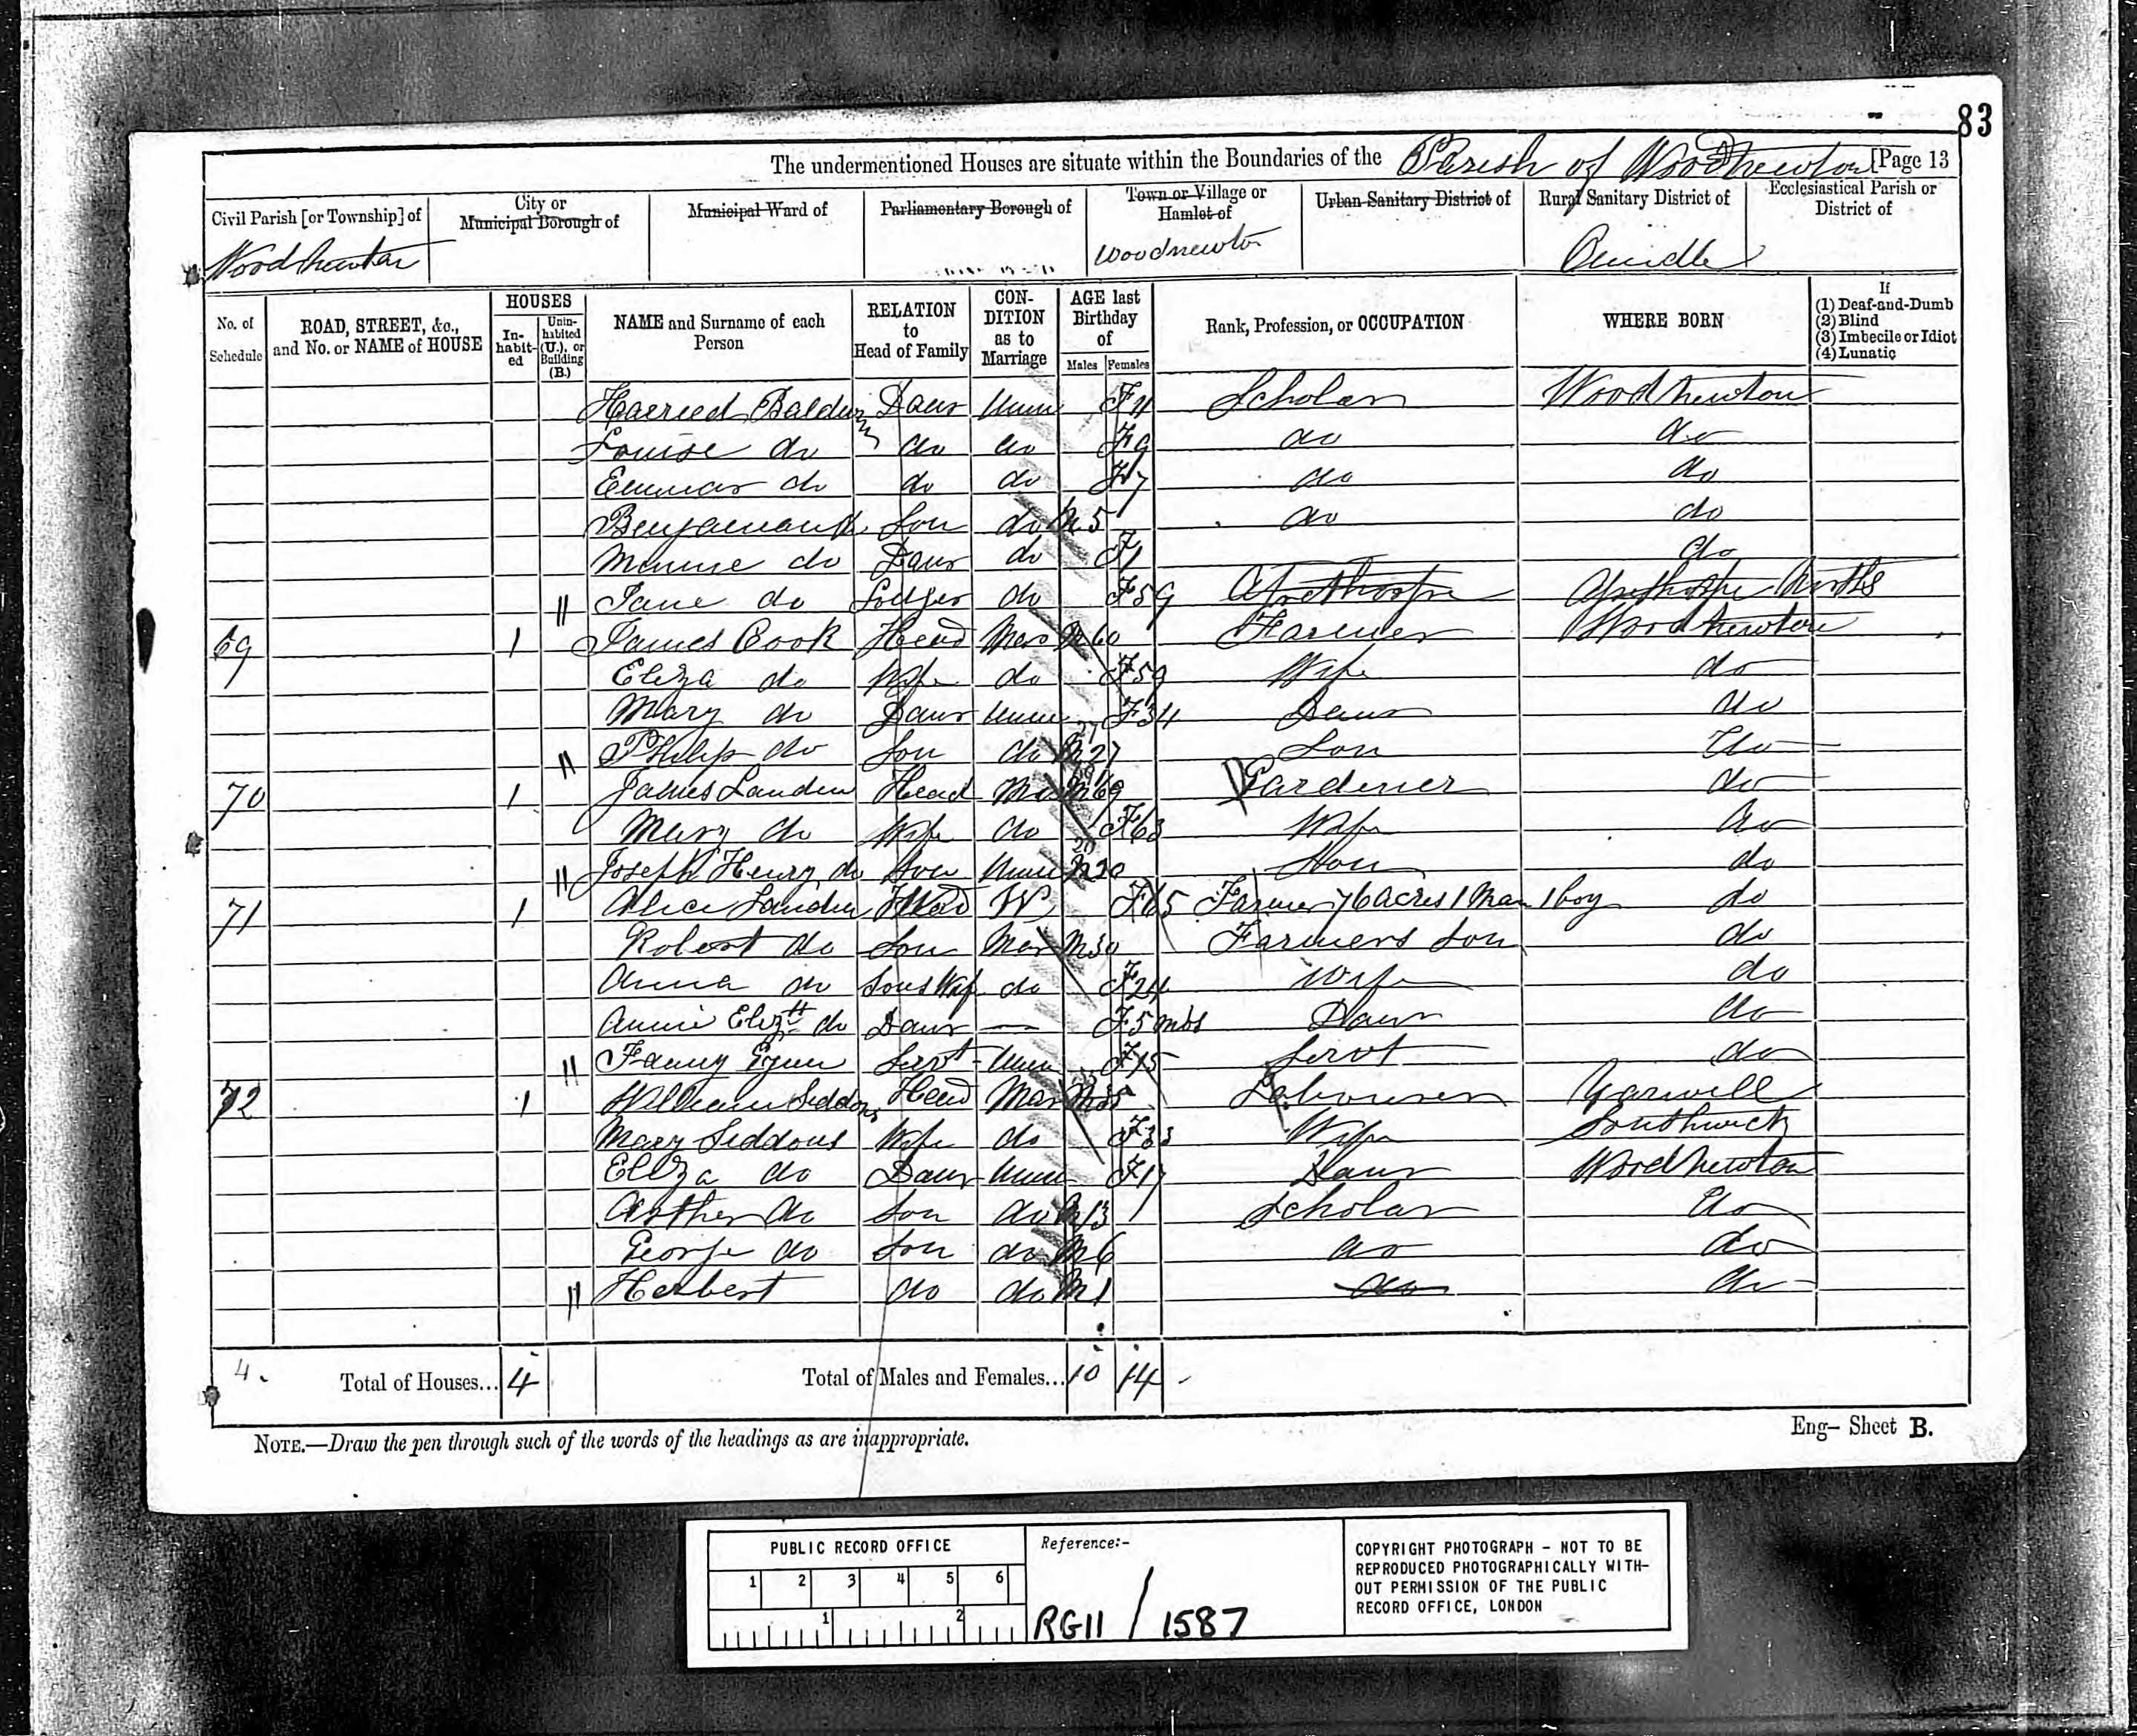 83
The undermentioned Houses are situate within the Boundaries of the Parish of Woodnewton [Page 13
Civil Parish [or Township] of
Woodnewton
City or
Municipal Borough of
Municipal Ward of
Parliamentary Borough of
Town or Village or
Hamlet of
Woodnewton
Urban Sanitary District of
Rural Sanitary District of
Oundle
Ecclesiastical Parish or
District of
No. of
Schedule
ROAD, STREET, &c.,
and No. or NAME of HOUSE
HOUSES
In-
habit-
ed
Unin-
habited
(U.), or
Building
(B.)
NAME and Surname of each
Person
RELATION
to
Head of Family
CON-
DITION
as to
Marriage
AGE last
Birthday
of
Males Females
Rank, Profession, or OCCUPATION
WHERE BORN
If
(1) Deaf-and-Dumb
(2) Blind
(3) Imbecile or Idiot
(4) Lunatic
Harried Baldwin Daur Unm F 11 Scholar Woodnewton
Louise do do do F 9 do do
Emmar do do do F 7 do do
Son do M 5 do do
Minnie do Daur do F 1 do
Jane do Lodger do F 59 Apethorpe Apethorpe
69 1 James Cook Head Mar M 60 Farmer Woodnewton
Eliza do Wife do F 59 Wife do
Mary do Daur Unm F 34 Daur do
Philip do Son do M 27 Son do
70 1 James Landin Head Mar M 69 Gardener do
Mary do Wife do F 63 Wife do
Joseph Henry do Son Unm M 20 Son do
71 1 Alice Landin Head W F 65 Farmer 76 Acres 1 Man 1 boy do
Robert do Son Mar M 30 Farmers Son do
Anna do Sons Wife do F 24 Wife do
Annie Elizth do Daur — F 5 mos Daur do
Fanny Servt Unm F 15 Servt do
72 1 William Siddons Head Mar M 35 Labourer Yarwell
Mary Siddons Wife do F 33 Wife Southwick
Eliza do Daur Unm F 17 Daur Woodnewton
Arther do Son do M 13 Scholar do
George do Son do M 6 do do
Herbert do do M 1 do do
4.
Total of Houses... 4
Total of Males and Females... 10 14
NOTE.—Draw the pen through such of the words of the headings as are inappropriate.
Eng— Sheet B.
PUBLIC RECORD OFFICE
1 2 3 4 5 6
1 2
Reference:-
RG11 / 1587
COPYRIGHT PHOTOGRAPH - NOT TO BE
REPRODUCED PHOTOGRAPHICALLY WITH-
OUT PERMISSION OF THE PUBLIC
RECORD OFFICE, LONDON